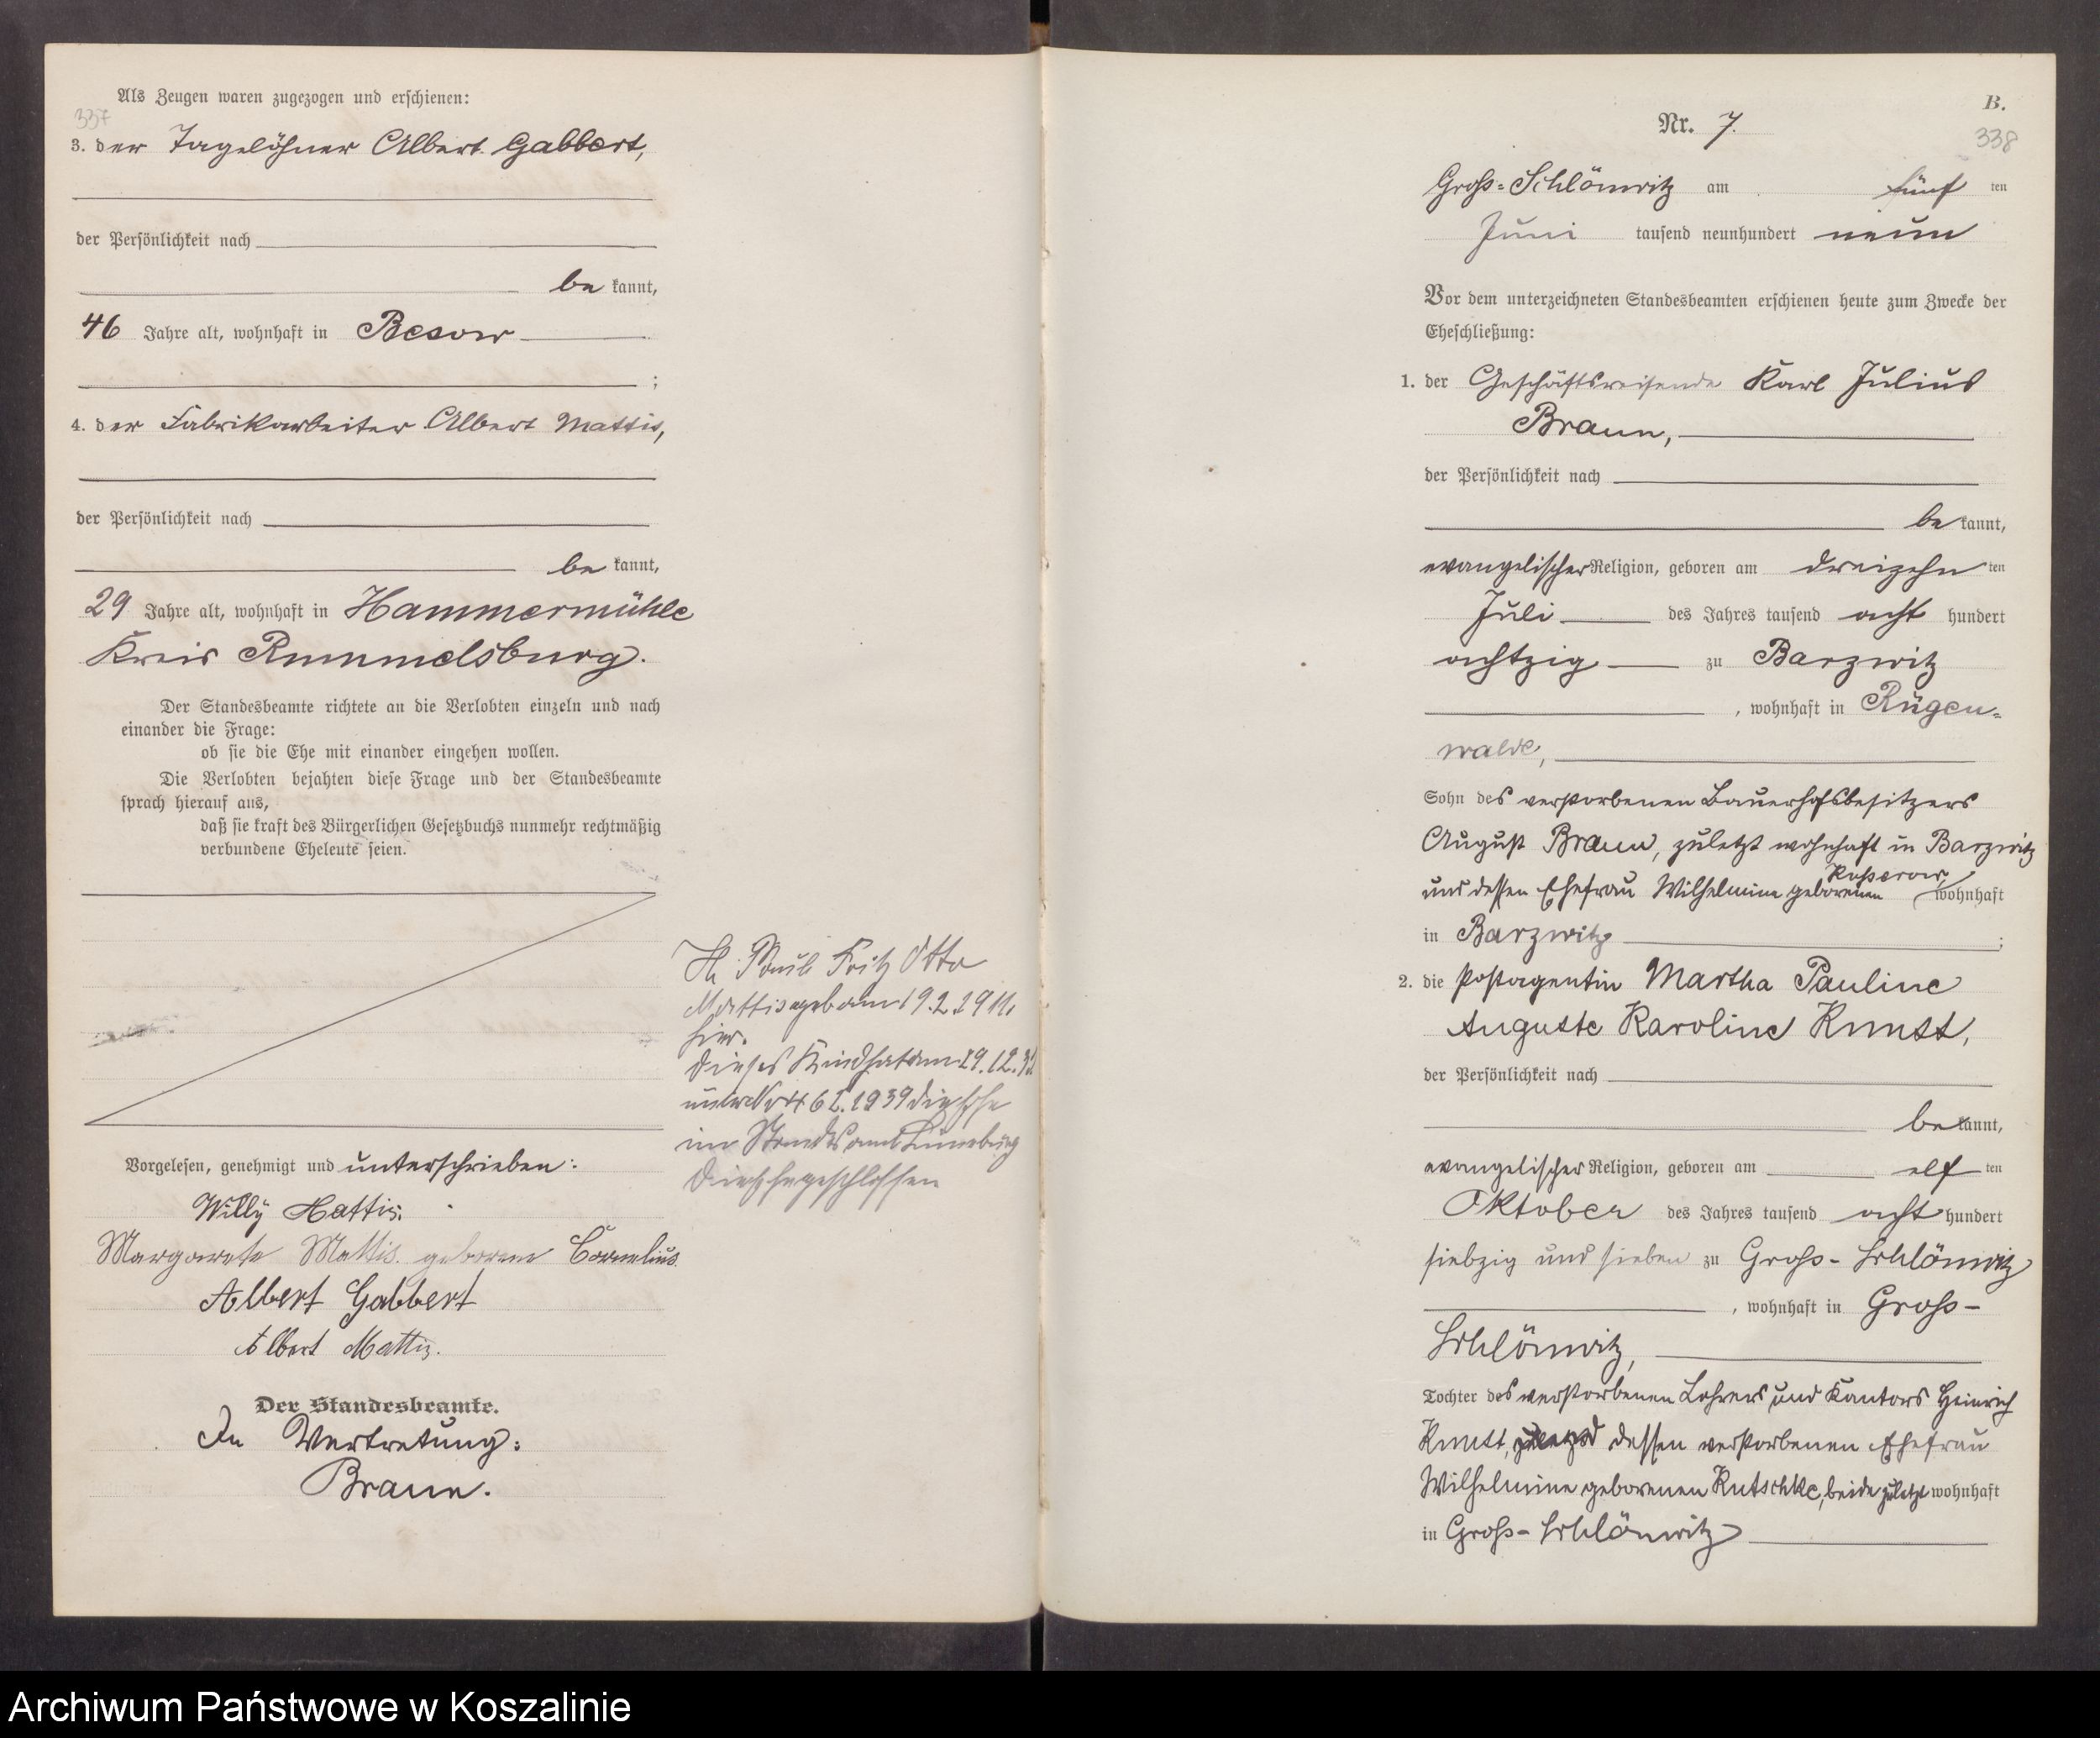 Als Zeugen waren zugezogen und erschienen:
337
3. der Tagelöhner Albert Gabbert,
der Persönlichkeit nach
be kannt,
46 Jahre alt, wohnhaft in Besow
;
4. der Fabrikarbeiter Albert Mattis,
der Persönlichkeit nach
be kannt,
29 Jahre alt, wohnhaft in Hammermühle
Kreis Rummelsburg.
Der Standesbeamte richtete an die Verlobten einzeln und nach
einander die Frage:
ob sie die Ehe mit einander eingehen wollen.
Die Verlobten bejahten diese Frage und der Standesbeamte
sprach hierauf aus,
daß sie kraft des Bürgerlichen Gesetzbuchs nunmehr rechtmäßig
verbundene Eheleute seien.
Vorgelesen, genehmigt und unterschrieben:
Willy Mattis.
Margarete Mattis geborene Cornelius.
Albert Gabbert
Albert Mattis.
Der Standesbeamte.
In Vertretung:
Braun.
Paul Fritz Otto
Mattis geb am 19.2.1911
hier.
Dieses Kind hat am 29.12.
unter Nr 1939 die Ehe
im Standesamt Lüneburg
die Ehe geschlossen
B.
Nr. 7.
338
Groß-Schlönwitz am fünf ten
Juni tausend neunhundert neun
Vor dem unterzeichneten Standesbeamten erschienen heute zum Zwecke der
Eheschließung:
1. der Geschäftsreisende Karl Julius
Braun,
der Persönlichkeit nach
be kannt,
evangelischer Religion, geboren am dreizehn ten
Juli des Jahres tausend acht hundert
achtzig zu Barzwitz
, wohnhaft in Rügen=
walde,
Sohn des verstorbenen Bauerhofsbesitzers
August Braun, zuletzt wohnhaft in Barzwitz
und dessen Ehefrau Wilhelmine geborenen Kusserow, wohnhaft
in Barzwitz ;
2. die Postagentin Martha Pauline
Auguste Karoline Kunst,
der Persönlichkeit nach
be kannt,
evangelischer Religion, geboren am elf ten
Oktober des Jahres tausend acht hundert
siebzig und sieben zu Groß-Schlönwitz
, wohnhaft in Groß-
Schlönwitz,
Tochter des verstorbenen Lehrers und Kantors Heinrich
Kunst, dessen verstorbenen Ehefrau
Wilhelmine geborenen Kutschke, beide zuletzt wohnhaft
in Groß-Schlönwitz
Archiwum Państwowe w Koszalinie